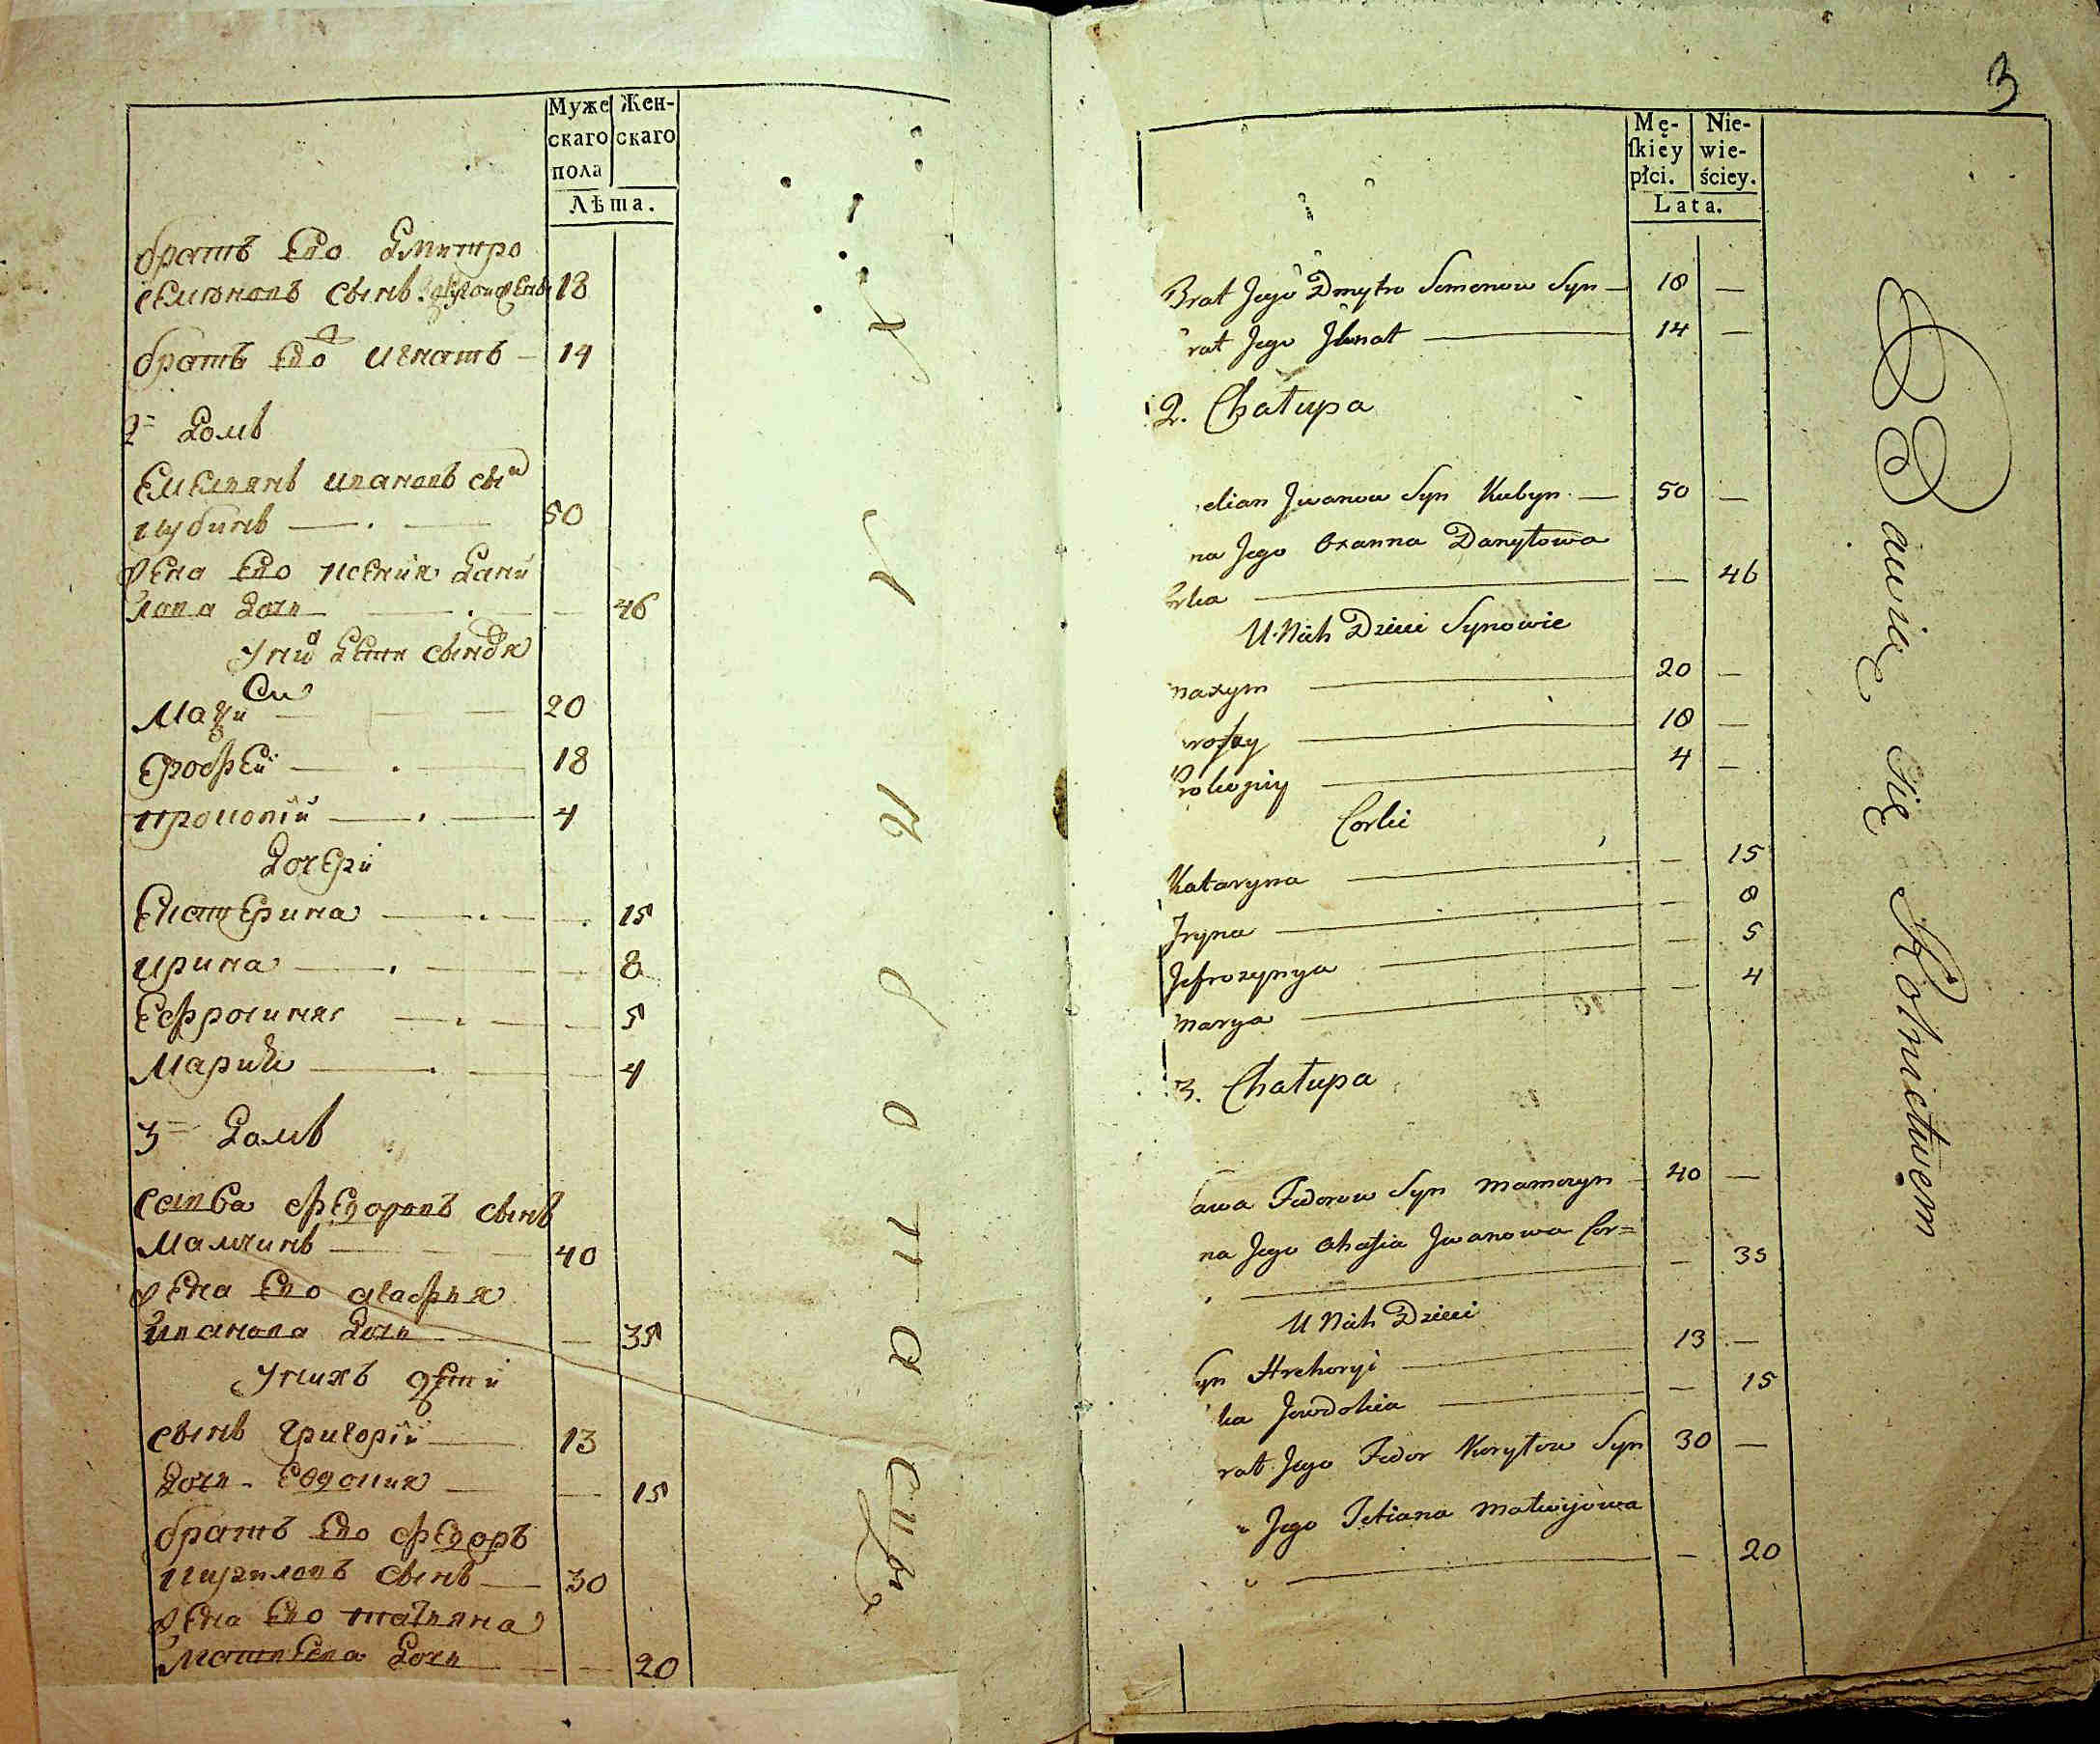 Муже
скаго
пола
Жен-
скаго
Лѣта.
братъ Ево Дмитро
семѣновъ сынъ 18
братъ Ево игнатъ — 14
2= Домъ
Емелянъ ивановъ сын
кубинъ — 50
жена Ево ксения Дани
лова дочь — 46
у них Дети сыновя
Маѯи
си — 20
Ерофей — 18
прокопий — 4
Дочери
Екатерина — 15
ирина — 8
Еефросиния — 5
Мария — 4
3= Домъ
Савва Федоровъ сынъ
Мамчинъ — 40
жена Ево агафия
иванова Дочь — 35
у нихъ дети
сынъ григорий — 13
Дочь Евдокия — 15
братъ Ево Федоръ
кириловъ сынъ — 30
жена Ево татияна
Матвеева Дочь — 20
3
Mę-
ſkiey
płci.
Nie-
wie-
ściey.
Lata.
Brat Jego Dmytro Semenow Syn — 18 —
rat Jego Jhnat — 14 —
2. Chałupa
elian Jwanow Syn Kubyn — 50 —
na Jego Oxanna Danyłowa
orka — — 46
U Nich Dzieci Synowie
maxym — 20 —
rofiy — 18 —
rokopiy — 4 —
Corki
Kataryna — — 15
Jryna — — 8
Jefrozynya — — 5
Marya — — 4
3. Chałupa
awa Fedorow Syn Mamczyn — 40 —
na Jego Ahafia Jwanowa Cor=
— — 35
U Nich Dzieci
yn Hrehoryi — 13 —
ka Jewdokia — — 15
rat Jego Fedor Kyryłow Syn 30 —
Jego Tetiana Matwijowa
— — 20
Bawią się Rolnictwem